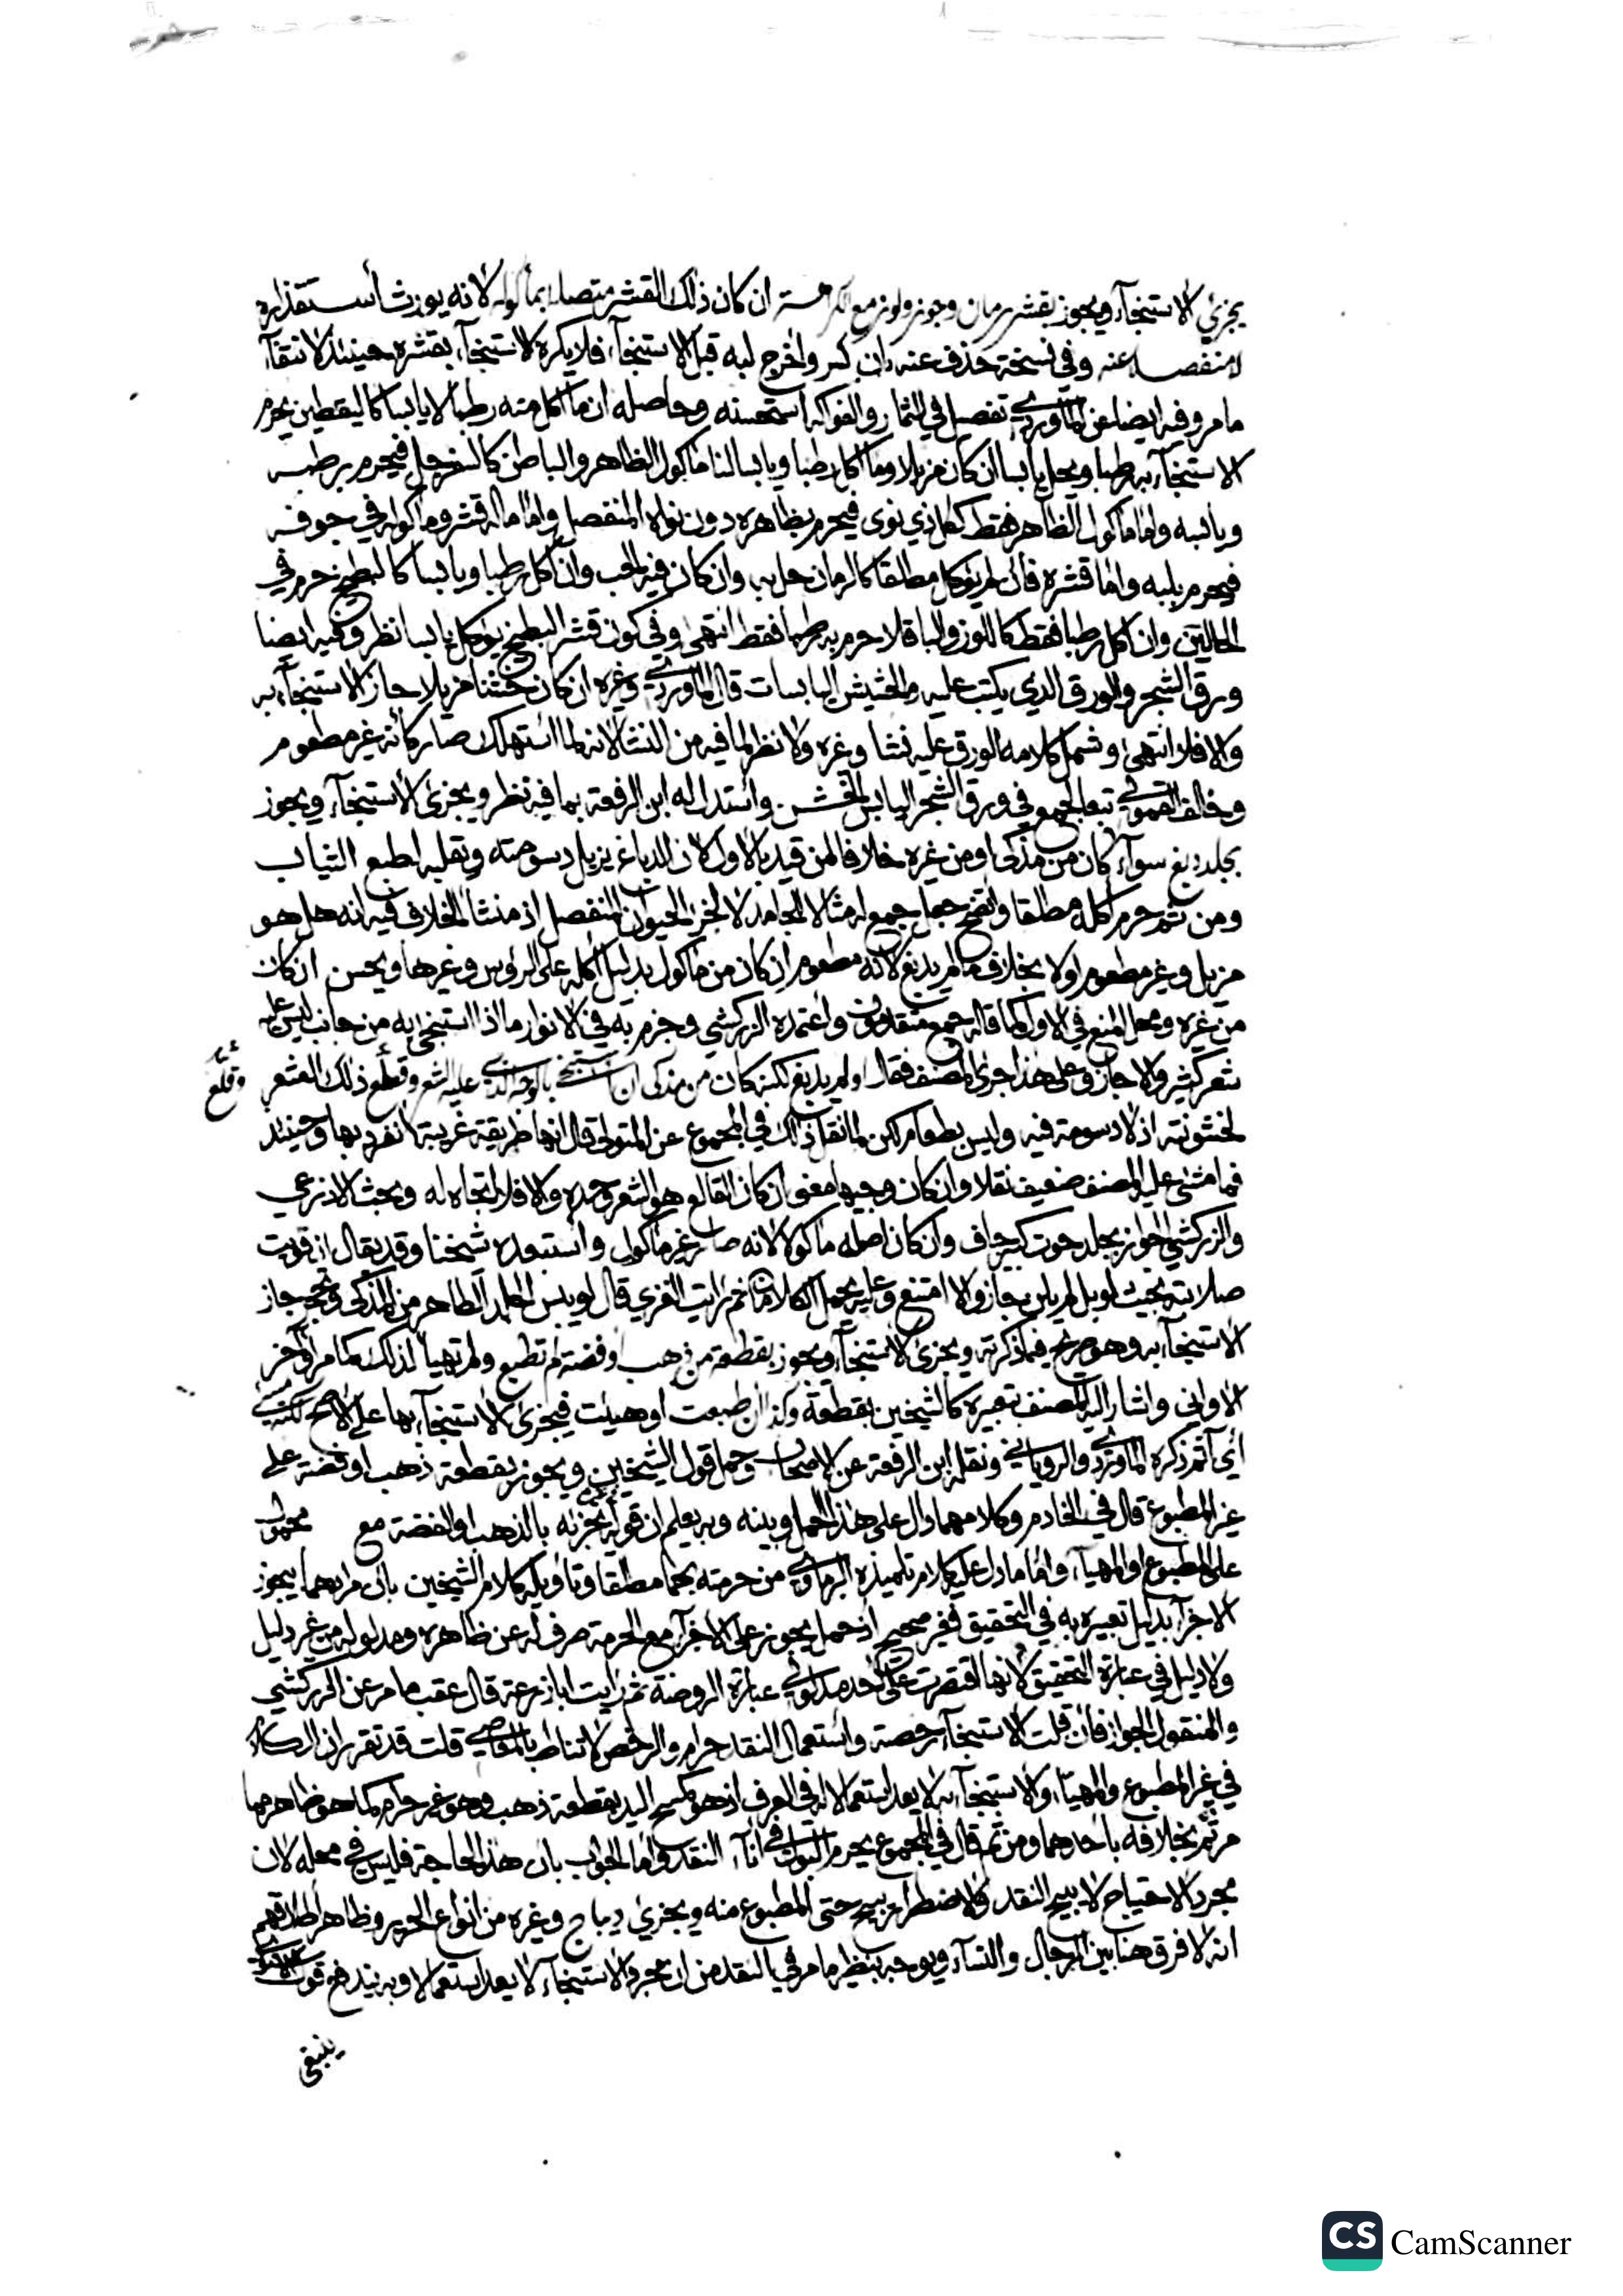 يجزئ الاستنجآء ويجوز بقشر رمان وجوز ولوز مع كراهة ان كان ذلك القشر متصلا بمأكوله لانه يورث استقذاره
لا منفصلا عنه وفي نسخة حذف عنه بان كسر واخرج لبه قبل الاستنجآء فلا يكره الاستنجآء بقشره حينئذ لانتفآء
ما مر وفيه ايضا عن الماوردي تفصيل في الثمار والفواكه استحسنه وحاصله ان ما اكل منه رطبا لا يابسا كاليقطين يحرم
الاستنجآء به رطبا ويحل يابسا ان كان مزيلا وما اكل رطبا ويابسا اما مأكول الظاهر والباطن كالسفرجل فيحرم برطبه
ويابسه واما مأكول الظاهر فقط كالخ ذي نوى فيحرم بظاهره دون نواه المنفصل واما ما له قشر ومأكوله في جوفه
فيحرم بلبه واما قشره فان لم يؤكل مطلقا كالرمان حل به وان كان فيه الحب وان اكل رطبا ويابسا كالبطيخ حرم في
الحالين وان اكل رطبا فقط كاللوز والباقلا حرم به رطبا فقط انتهى وفي كون قشر البطيخ يؤكل يابسا نظر وفيه ايضا
ورق الشجر والورق الذي يكتب عليه والحشيش اليابسات قال الماوردي وغيره ان كان خشنا مزيلا جاز الاستنجآء به
والا فلا انتهى وشمل كلامه الورق عليه نشا وغيره ولا نظر لما فيه من النشا لانه لما استهلك صار كانه غير مطعوم
وخالف القمولي تبعا لجمع في ورق الشجر اليابس الخشن واستدل له ابن الرفعة بما فيه نظر ويجزئ الاستنجآء ويجوز
بجلد دبغ سوآء كان من مذكى او من غيره خلافا لمن قيد بالاول لان الدباغ يزيل دسومته ويقلبه لطبع الثياب
ومن ثم حرم اكله مطلقا واتضح جعل جمع له مثالا للجامد لا لجزء الحيوان المنفصل اذ منشأ الخلاف فيه انه هل هو
مزيل وغير مطعوم اولا بخلاف ما لم يدبغ لانه مطعوم ان كان من مأكول بدليل اكله على الرؤس وغيرها ونجس ان كان
من غيره ومحل المنع في الاول كما قاله جمع متقدمون واعتمده الزركشي وجزم به في الانوار ما اذا استنجى به من جانب ليس عليه
شعر كثير والا جاز وعلى هذا جرى المصنف فقال او لم يدبغ لكنه كان من مذكى ان استنجى بالوجه الذي عليه الشعر وقلع ذلك الشعر
وقلع
لخشونته اذ لا دسومة فيه وليس بطعام لكن لما نقل ذلك في المجموع عن المتولي قال انها طريقة غريبة انفرد بها وحينئذ
فما مشى عليه المصنف ضعيف نقلا وان كان وجيها معنى ان كان القالع هو الشعر وحده والا فلا اتجاه له وبحث الاذرعي
والزركشي الجواز بجلد حوت كبير جاف وان كان اصله مأكولا لانه صار غير مأكول واستبعده شيخنا وقد يقال ان قويت
صلابته بحيث لو بل لم يلن جاز والا امتنع وعليه يحمل الكلامان ثم رايت الغزي قال لو يبس الجلد الطاهر من المذكى وتحجر جاز
الاستنجآء به وهو صريح فيما ذكرته ويجزئ الاستنجآء ويجوز بقطعة من ذهب او فضة لم تطبع ولم تهيأ لذلك كما مر آخر
الاواني واشار اليه المصنف بتعبيره كالشيخين بقطعة وكذا ان طبعت او هيئت فيجزئ الاستنجآء بها على الاصح لكنه مسيء
اي آثم ذكره الماوردي والروياني ونقله ابن الرفعة عن الاصحاب وحمل قول الشيخين ويجوز بقطعة ذهب او فضة على
غير المطبوع قال في الخادم وكلامهما دال على هذا الحمل وبينه وبه يعلم ان قوله يجزئه بالذهب او الفضة مع محمول
على المطبوع او المهيأ واما ما دل عليه كلام تلميذه البرماوي من حرمته بهما مطلقا وتأويله كلام الشيخين بان مرادهما بيجوز
الاجزآء بدليل تعبيره به في التحقيق فغير صحيح اذ حمل يجوز على الاجزآء مع الحرمة صرف له عن ظاهره ومدلوله من غير دليل
ولا دليل في عبارة التحقيق لانها اقتصرت على احد مدلولي عبارة الروضة ثم رايت ابا زرعة قال عقب ما مر عن الزركشي
والمنقول الجواز فان قلت الاستنجآء رخصة واستعمال النقد حرام والرخص لا تناط بالمعاصي قلت قد تقرر ان الكلام
في غير المطبوع والمهيأ والاستنجآء به لا يعد استعمالا له في العرف اذ هو كمسح اليد بقطعة ذهب وهو غير حرام كما هو ظاهر مما
مر ثم بخلافه باحدهما ومن ثم قال في المجموع يحرم البول في انآء النقد واما الجواب بان هذا لحاجة فليس في محله لان
مجرد الاحتياج لا يبيح النقد والاضطرار يبيح حتى المطبوع منه ويجزئ ديباج وغيره من انواع الحرير وظاهر اطلاقهم
انه لا فرق هنا بين الرجال والنسآء ويوجه بنظير ما مر في النقد من ان مجرد الاستنجآء لا يعد استعمالا وبه يندفع قول
ينبغي
CS CamScanner